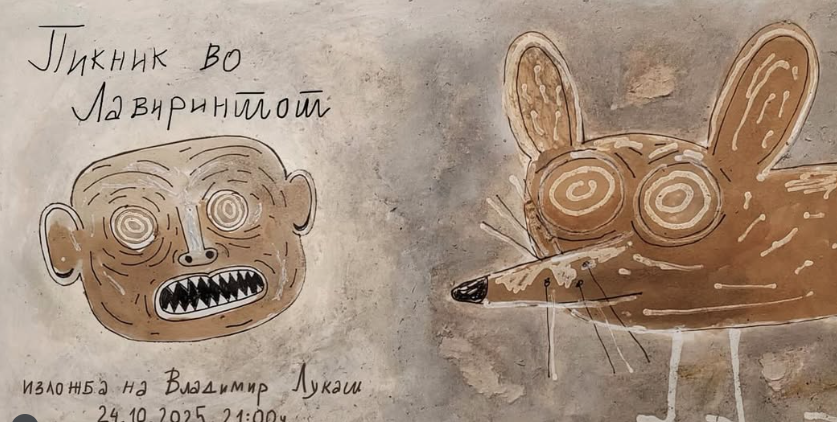 Пикник во
Лавиринтот
изложба на Владимир Лукаш
24.10.2025 21:00ч